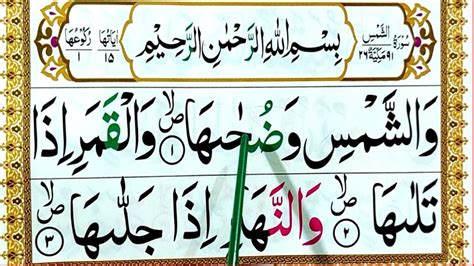 سُوْرَةُ الشَّمْسِ ٩١ مَكِّيَّةٌ ٢٦ بِسْمِ اللّٰهِ الرَّحْمٰنِ الرَّحِيْمِ اٰيَاتُهَا ١٥ رُكُوْعُهَا ١
وَالشَّمْسِ وَضُحٰىهَا ١ۙ ص وَالْقَمَرِ اِذَا
تَلٰىهَا ٢ۙ ص وَالنَّهَارِ اِذَا جَلّٰىهَا ٣ۙ ص